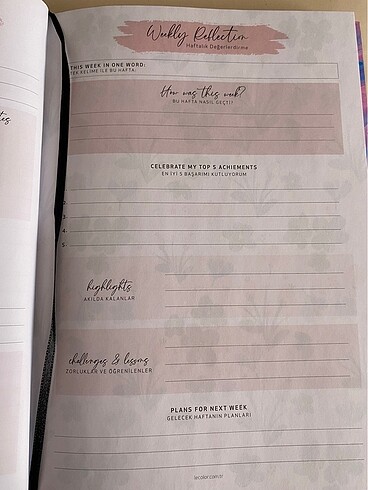 Weekly Reflection
Haftalık Değerlerdirme
THIS WEEK IN ONE WORD:
TEK KELİME İLE BU HAFTA:
How was this week?
BU HAFTA NASIL GEÇTİ?
CELEBRATE MY TOP 5 ACHIEMENTS
EN İYİ 5 BAŞARIMI KUTLUYORUM
3.
4.
5.
highlights
AKILDA KALANLAR
challenges & lessons
ZORLUKLAR VE ÖĞRENİLENLER
PLANS FOR NEXT WEEK
GELECEK HAFTANIN PLANLARI
lecolor.com.tr